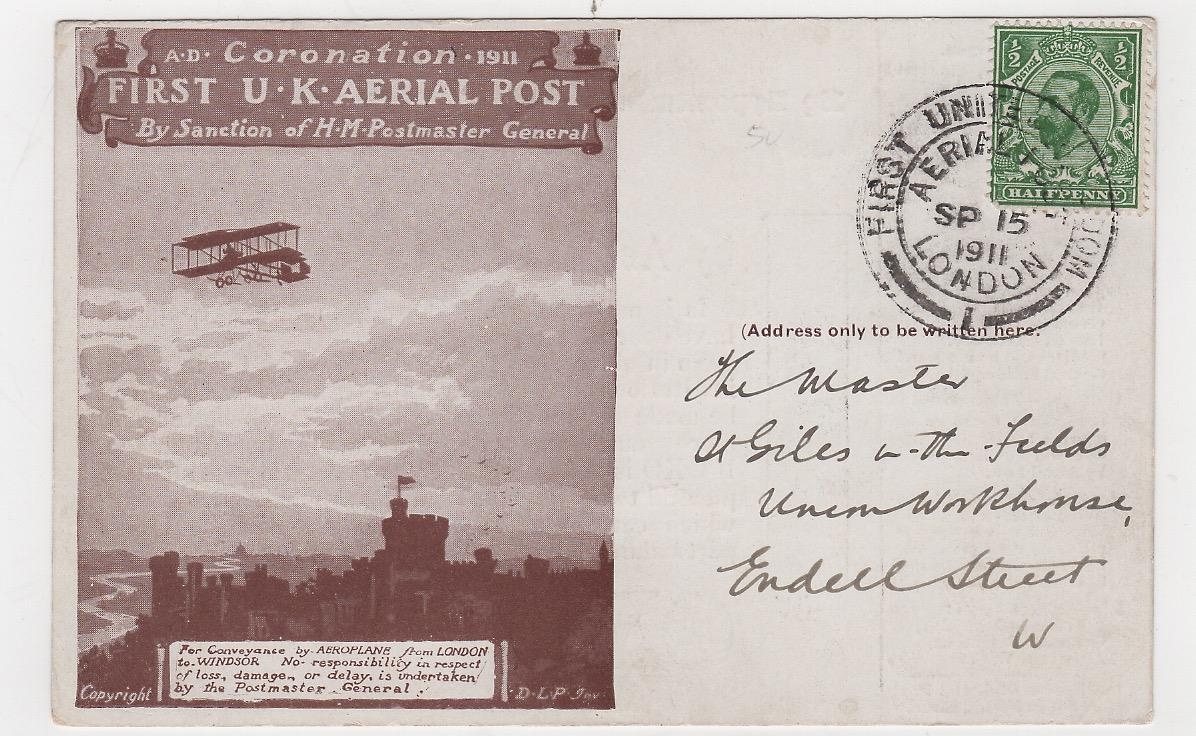 A·D· Coronation ·1911
FIRST U·K·AERIAL POST
By Sanction of H·M·Postmaster General
For Conveyance by AEROPLANE from LONDON
to WINDSOR No responsibility in respect
of loss, damage, or delay, is undertaken
by the Postmaster General.
Copyright
D·L·P· Inv.
½ ½
POSTAGE REVENUE
HALFPENNY
FIRST UNITED KINGDOM
AERIAL POST
SP 15
1911
LONDON
1
50
(Address only to be written here.
The Master
St Giles in-the-Fields
Union Workhouse,
Endell Street
W